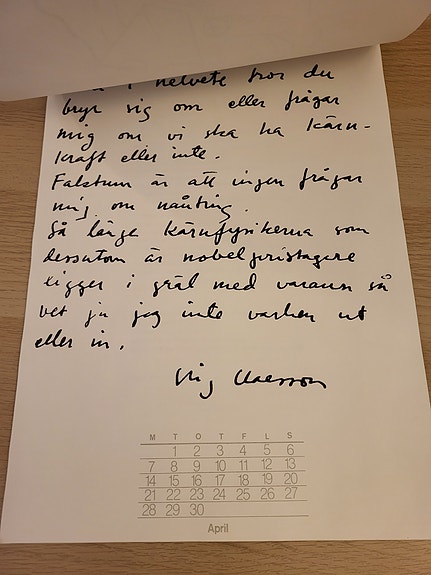 i helvete tror du
bryr sig om eller frågar
mig om vi ska ha kärn-
kraft eller inte.
Faktum är att ingen frågar
mig om nånting.
Så länge kärnfysikerna som
dessutom är nobelpristagare
ligger i gräl med varann så
vet ju jag inte varken ut
eller in.
Stig Claesson
M T O T F L S
1 2 3 4 5 6
7 8 9 10 11 12 13
14 15 16 17 18 19 20
21 22 23 24 25 26 27
28 29 30
April